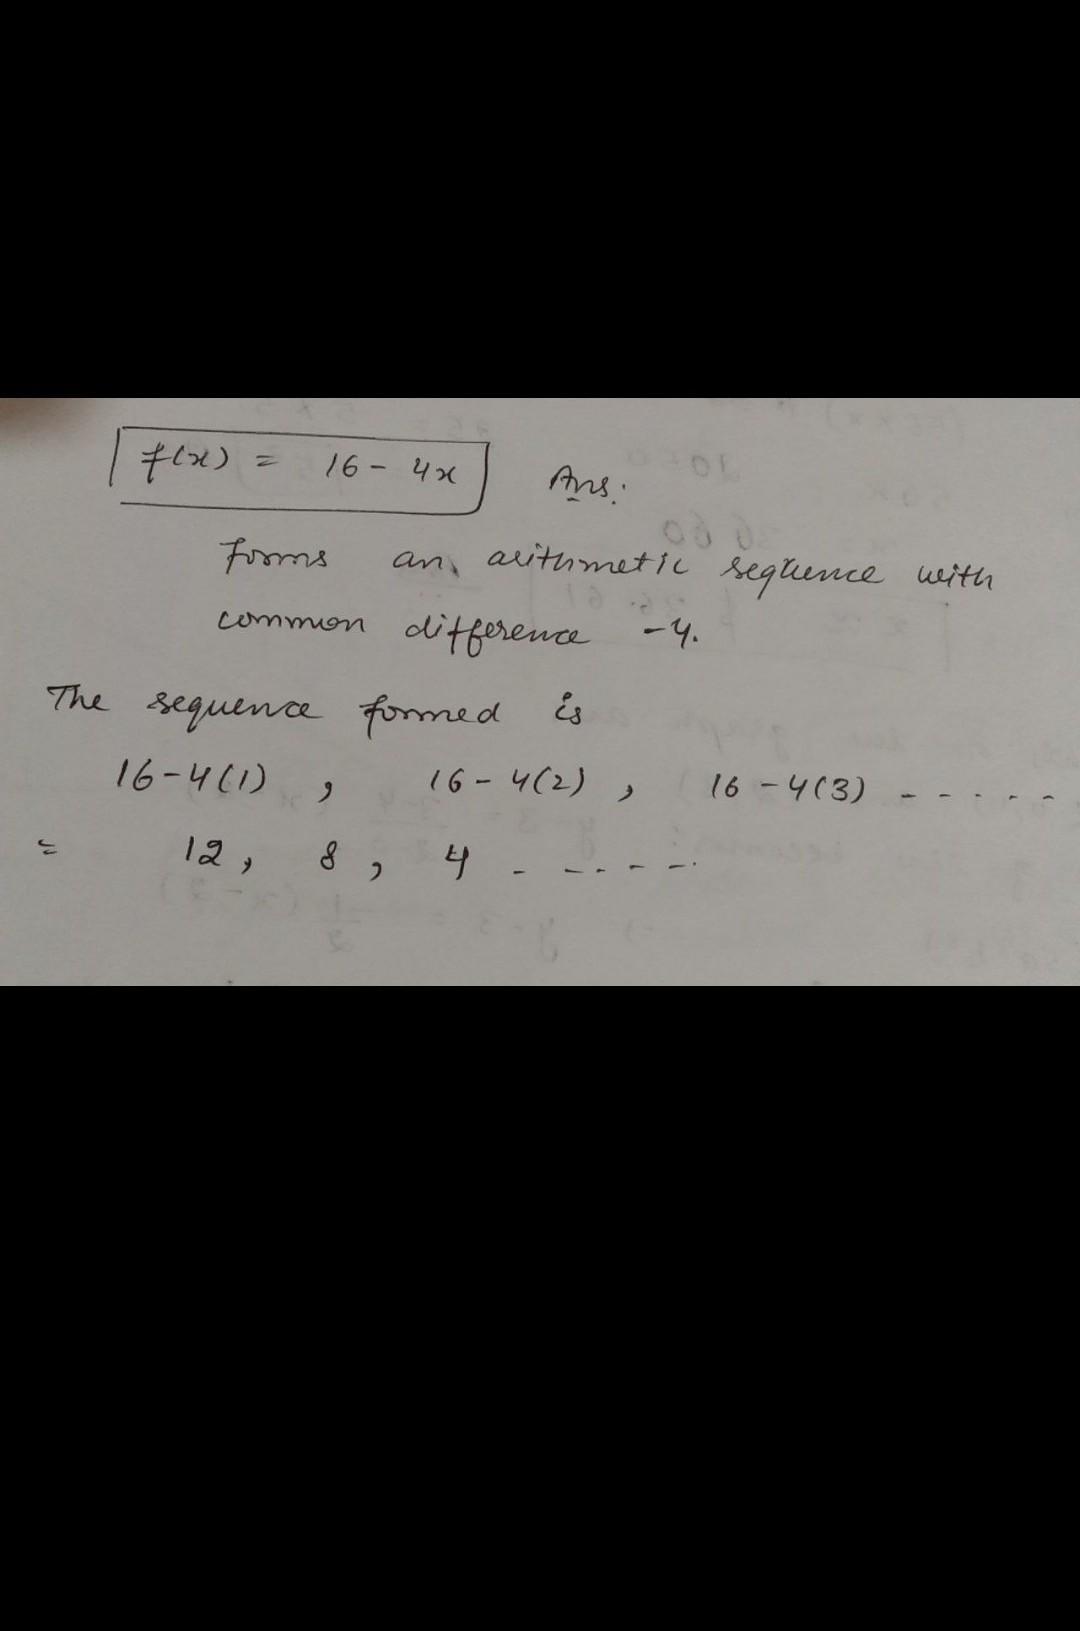 f(x) = 16 - 4x Ans.
forms an arithmetic sequence with
common difference -4.
The sequence formed is
16-4(1) , 16-4(2) , 16-4(3) - - - - -
= 12, 8, 4 - - - - - -